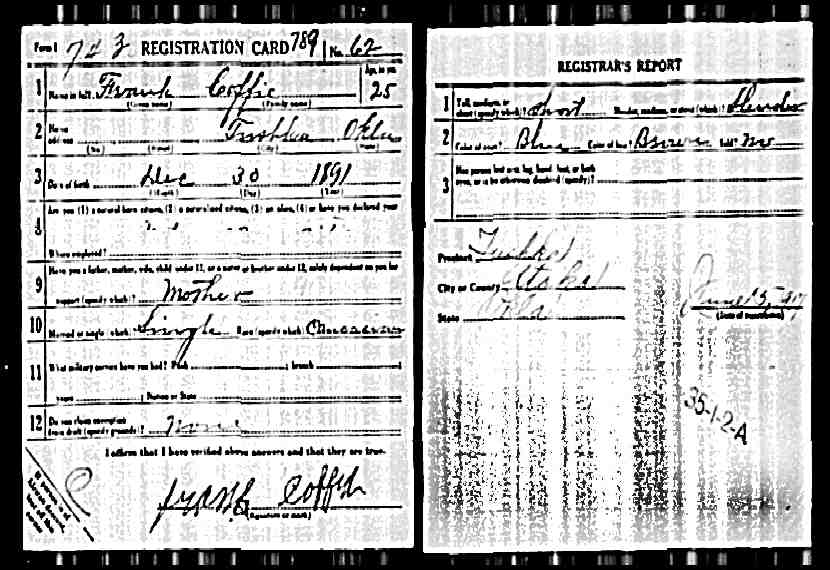 Form 1 743 REGISTRATION CARD 789 No. 62
1 Name in full Frank Coffie Age, in yrs. 25
(Given name) (Family name)
2 Home address Tushka Okla
(No.) (Street) (City) (State)
3 Date of birth Dec 30 1891
(Month) (Day) (Year)
4 Are you (1) a natural born citizen, (2) a naturalized citizen, (3) an alien, (4) or have you declared your
Where employed?
9 Have you a father, mother, wife, child under 12, or a sister or brother under 12, solely dependent on you for
support (specify which)? Mother
10 Married or single (which)? Single Race (specify which)? Caucasian
11 What military service have you had? Rank ; branch ;
years ; Nation or State
12 Do you claim exemption from draft (specify grounds)? None
I affirm that I have verified above answers and that they are true.
Frank Coffie
(Signature or mark)
REGISTRAR'S REPORT
1 Tall, medium, or short (specify which)? Short Slender, medium, or stout (which)? Slender
2 Color of eyes? Blue Color of hair? Brown Bald? No
3 Has person lost arm, leg, hand, foot, or both
eyes, or is he otherwise disabled (specify)?
Precinct Tushka
City or County Atoka
State Okla
June 5-17
(Date of registration)
35-1-2-A